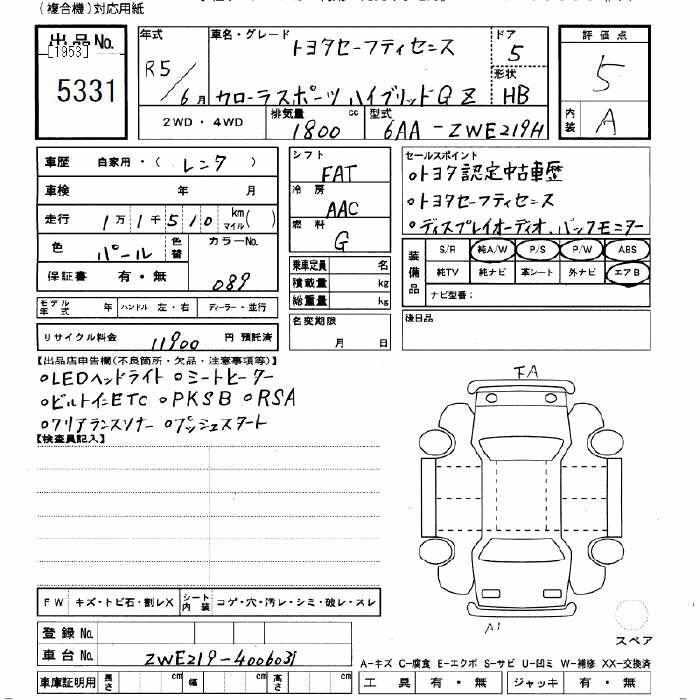 (複合機)対応用紙
出品No.
[1953]
5331
年式
R5/6月
車名・グレード
トヨタセーフティセンス
カローラスポーツ ハイブリッドG Z
ドア
5
形状
HB
評価点
5
内装
A
2WD・4WD
排気量
1800
cc
型式
6AA-ZWE219H
車歴
自家用・(レンタ)
車検
年 月
走行
1万1千510
km
マイル( )
色
パール
色替
カラーNo.
089
保証書
有・無
モデル年式
年
ハンドル 左・右
ディーラー・並行
リサイクル料金
11900
円 預託済
シフト
FAT
冷房
AAC
燃料
G
乗車定員 名
積載量 kg
総重量 kg
名変期限
月 日
セールスポイント
○トヨタ認定中古車歴
○トヨタセーフティセンス
○ディスプレイオーディオ.バックモニター
装備品
S/R 純A/W P/S P/W ABS
純TV 純ナビ 革シート 外ナビ エアB
ナビ型番:
後日品
【出品店申告欄(不良箇所・欠品・注意事項等)】
○LEDヘッドライト ○シートヒーター
○ビルトインETC ○PKSB ○RSA
○クリアランスソナー ○プッシュスタート
【検査員記入】
FA
A1
スペア
FW キズ・トビ石・割レX
シート内装
コゲ・穴・汚レ・シミ・破レ・スレ
登録No.
車台No.
ZWE219-4006031
A-キズ C-腐食 E-エクボ S-サビ U-凹ミ W-補修 XX-交換済
車庫証明用
長さ
cm
幅
cm
高さ
cm
工具 有・無
ジャッキ 有・無